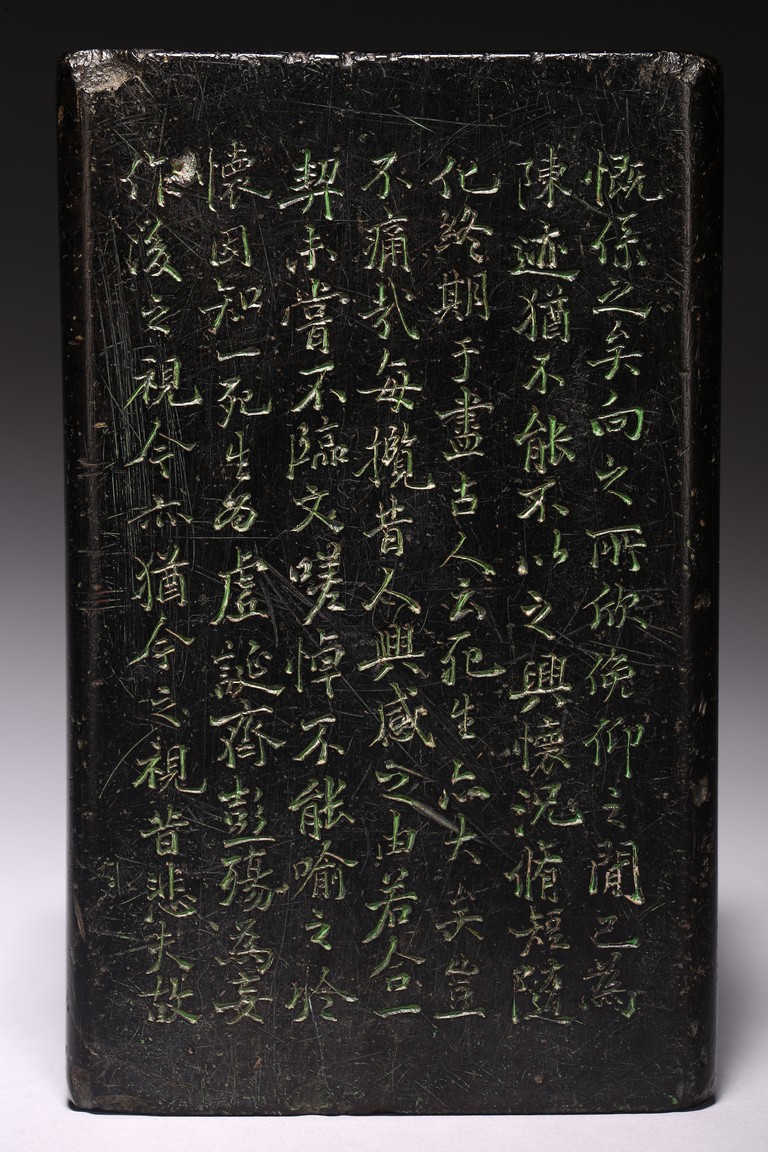 慨係之矣向之所欣俛仰之閒已為
陳迹猶不能不以之興懷況脩短隨
化終期于盡古人云死生亦大矣豈
不痛哉每攬昔人興感之由若合一
契未嘗不臨文嗟悼不能喻之於
懷因知一死生為虛誕齊彭殤為妄
作後之視今亦猶今之視昔悲夫故